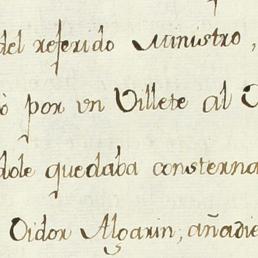 del referido Ministro,
ó por un Villete al
dole quedaba consterna
Oidor Algarin, añadie